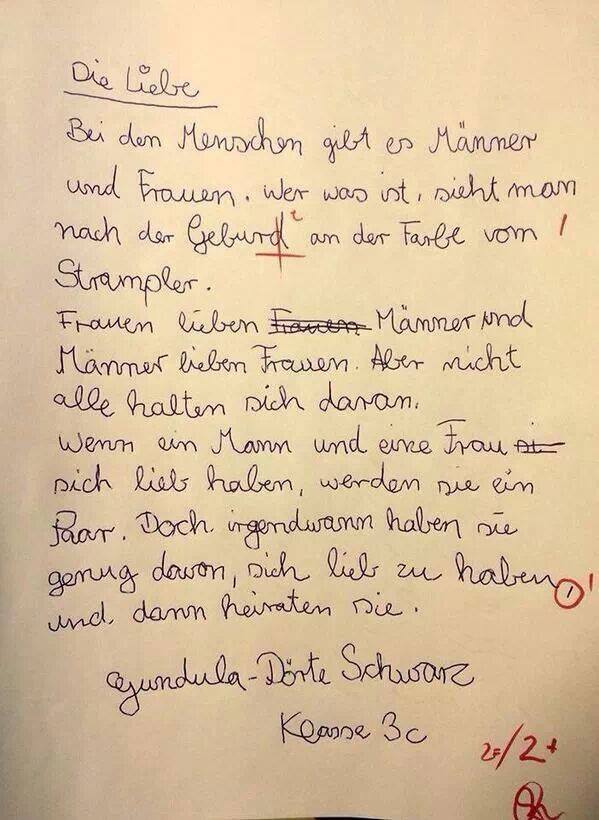 Die Liebe
Bei den Menschen gibt es Männer
und Frauen. Wer was ist, sieht man
nach der Geburd t an der Farbe vom
Strampler.
Frauen lieben Frauen Männer und
Männer lieben Frauen. Aber nicht
alle halten sich daran.
Wenn ein Mann und eine Frau si
sich lieb haben, werden sie ein
Paar. Doch irgendwann haben sie
genug davon, sich lieb zu haben,
und dann heiraten sie.
Gundula-Dörte Schwarz
Klasse 3c
/2+